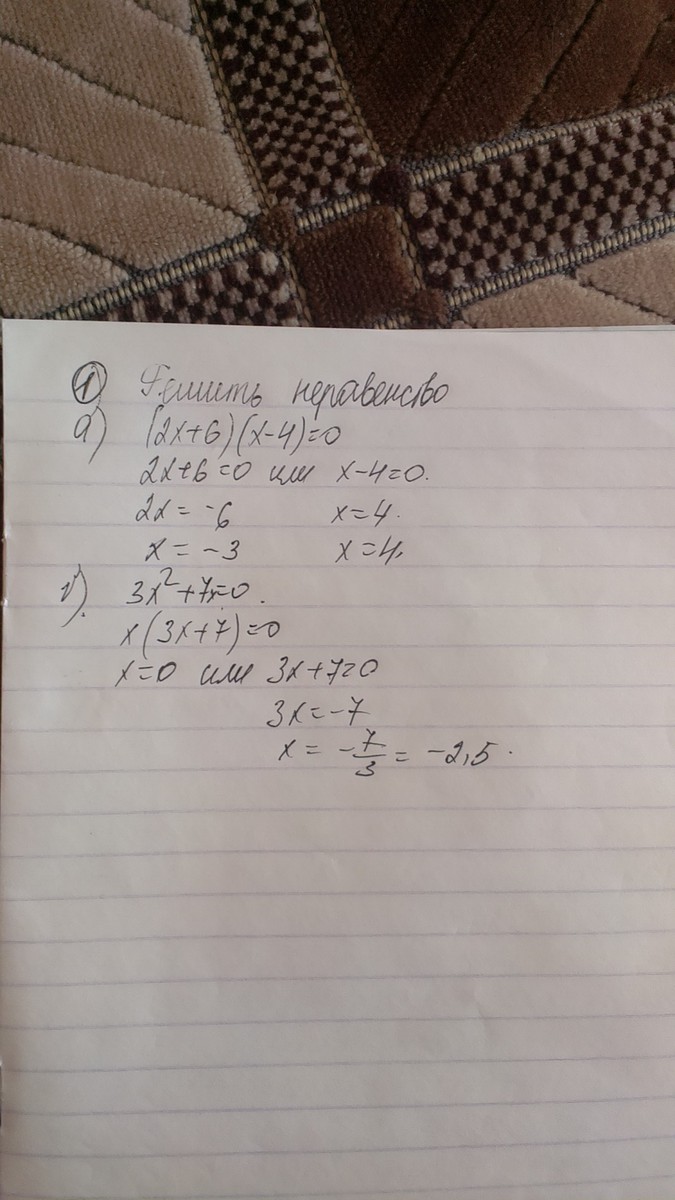 ① Решить неравенство
а) (2x+6)(x-4)=0
2x+6=0 или x-4=0.
2x = -6 x=4.
x = -3 x=4,
б). 3x²+7x=0.
x(3x+7)=0
x=0 или 3x+7=0
3x=-7
x = -7/3 = -2,5.